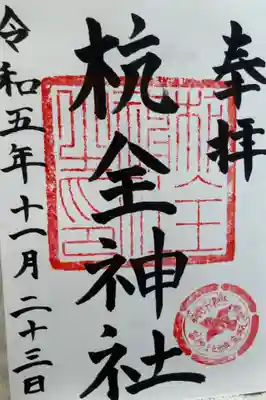 奉拝
杭全神社
令和五年十一月二十三日